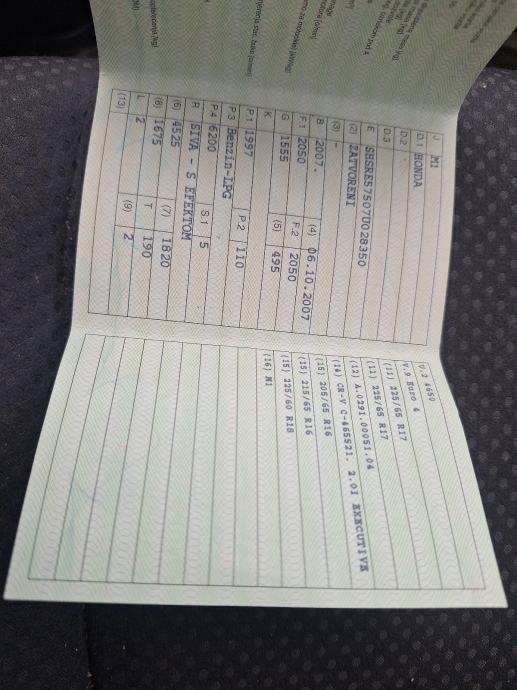 J M1
D.1 HONDA
D.2
D.3
E SHSRE57507U028350
(2) ZATVORENI
(3) -
B 2007. (4) 06.10.2007
F.1 2050 F.2 2050
G 1555 (5) 495
K
P.1 1997 P.2 110
P.3 Benzin-LPG
P.4 6200 S.1 5
R SIVA - S EFEKTOM
(6) 4525 (7) 1820
(8) 1675 T 190
L 2 (9) 2
(13)
U.2 4650
V.9 Euro 4
(11) 225/65 R17
(11) 225/65 R17
(12) A.0291.00051.04
(14) CR-V C-465521. 2.0I EXECUTIVE
(15) 205/65 R16
(15) 215/65 R16
(15) 225/60 R18
(16) M1